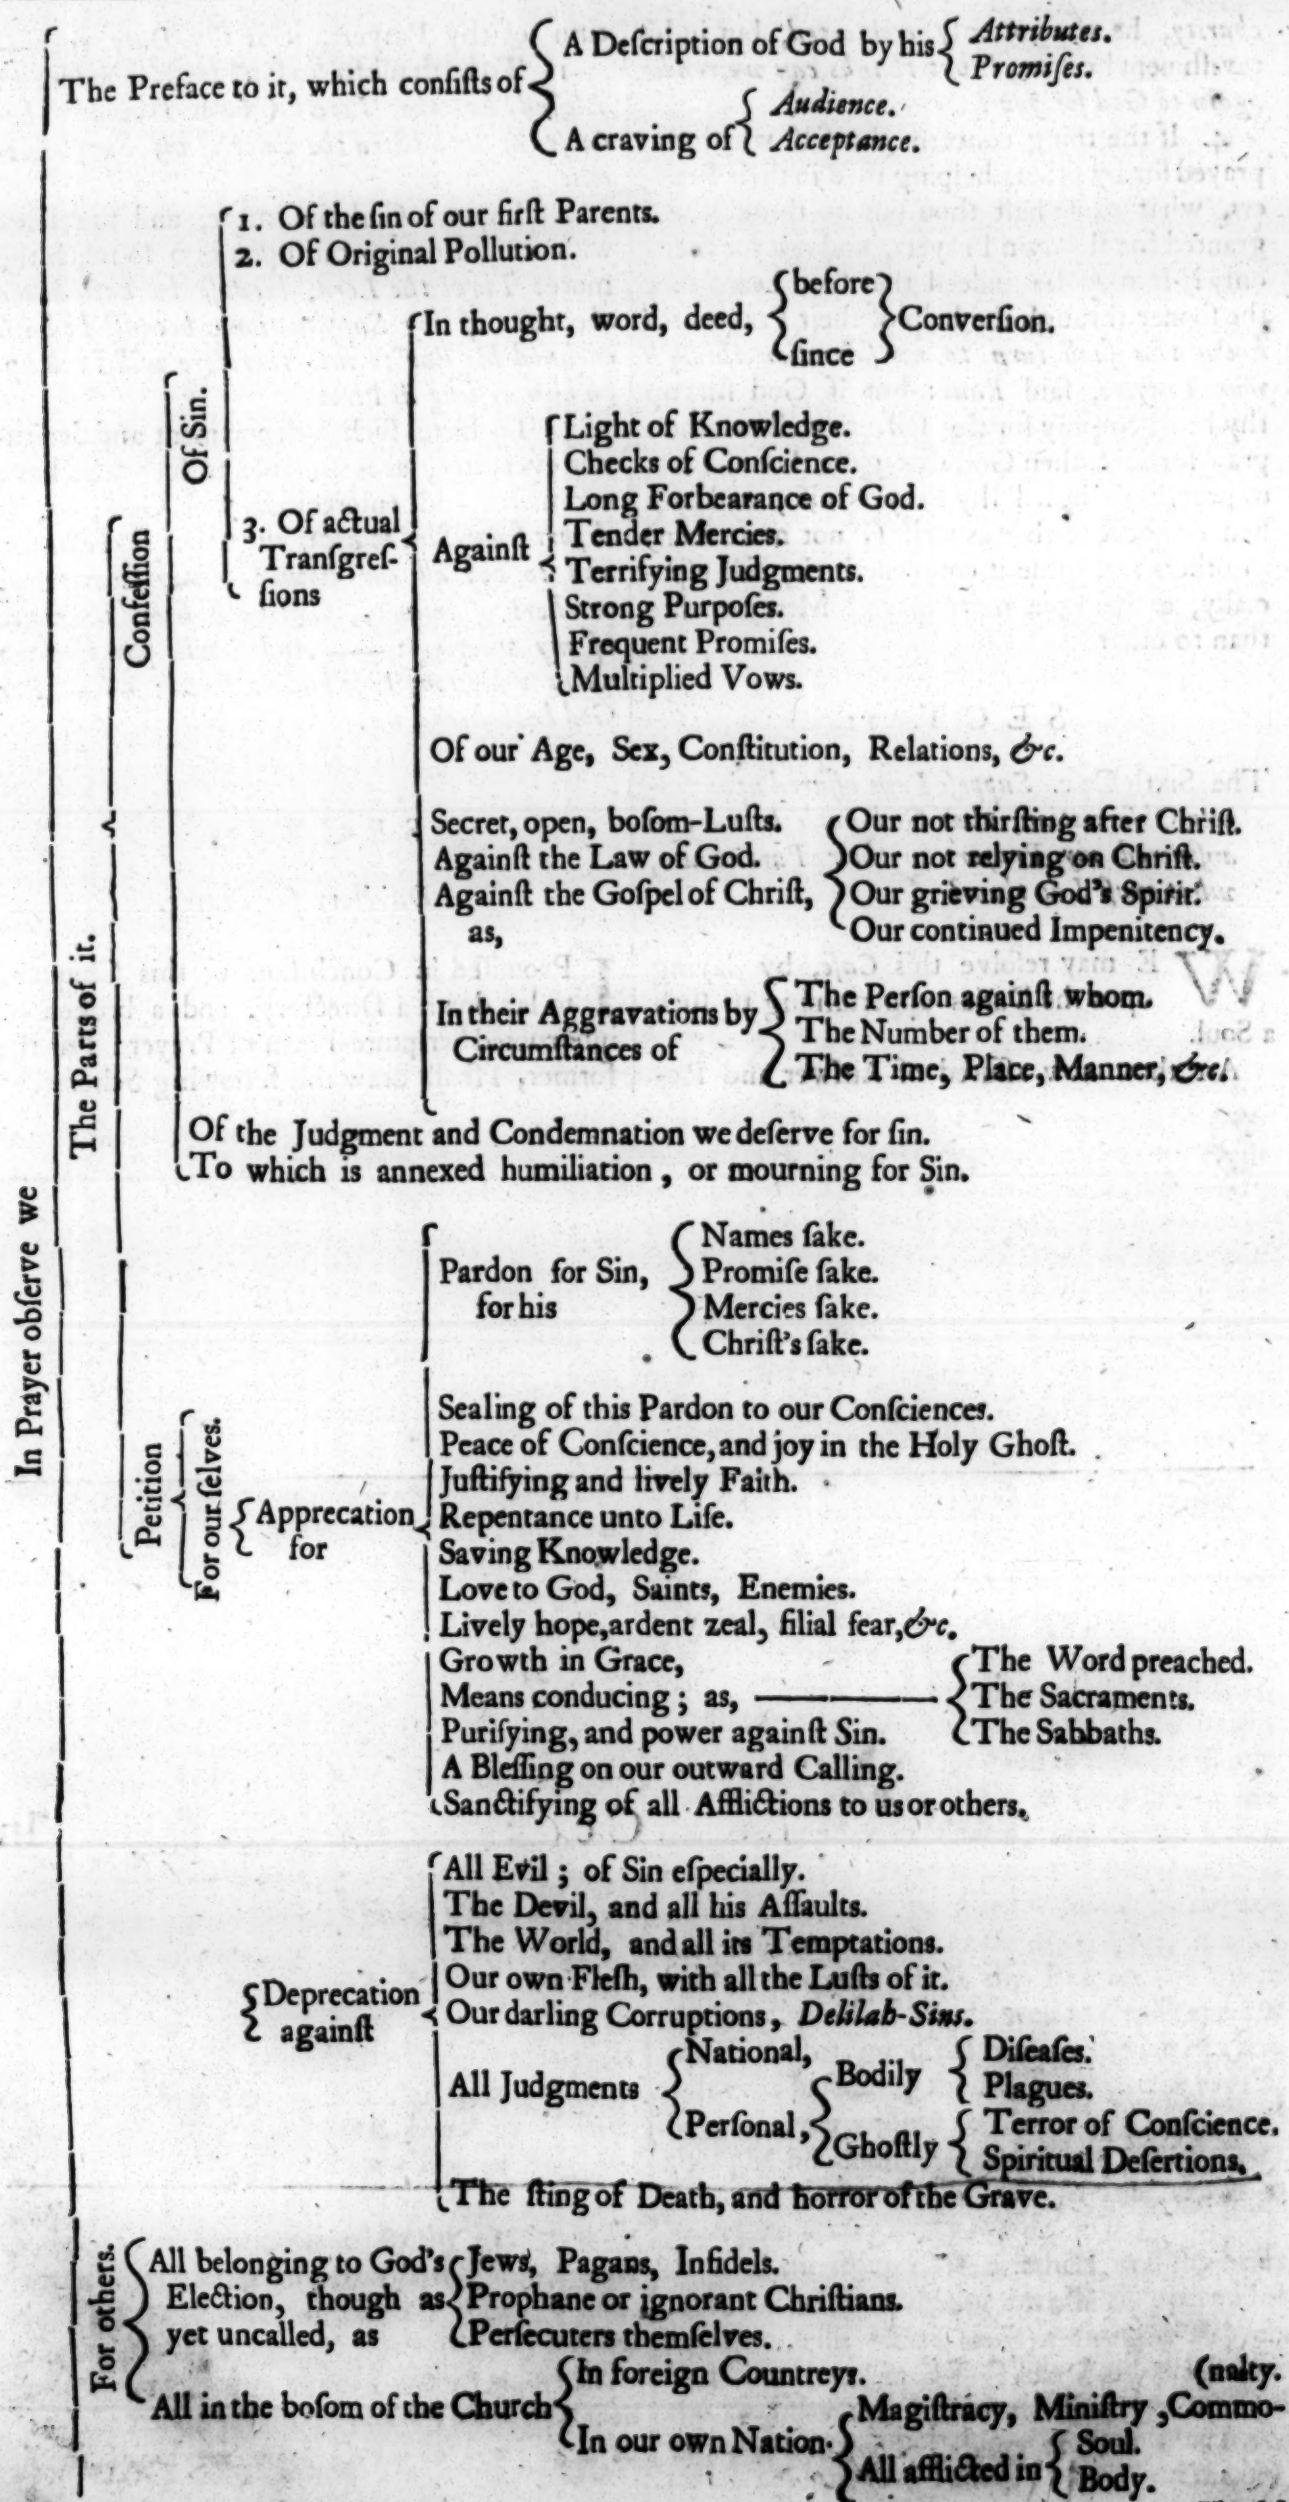 In Prayer obſerve we
The Preface to it, which conſiſts of
A Deſcription of God by his
Attributes.
Promiſes.
A craving of
Audience.
Acceptance.
The Parts of it.
Confeſſion
Of Sin.
1. Of the ſin of our firſt Parents.
2. Of Original Pollution.
3. Of actual
Tranſgreſ-
ſions
In thought, word, deed,
before
ſince
Converſion.
Againſt
Light of Knowledge.
Checks of Conſcience.
Long Forbearance of God.
Tender Mercies.
Terrifying Judgments.
Strong Purpoſes.
Frequent Promiſes.
Multiplied Vows.
Of our Age, Sex, Conſtitution, Relations, &c.
Secret, open, boſom-Luſts.
Againſt the Law of God.
Againſt the Goſpel of Chriſt,
as,
Our not thirſting after Chriſt.
Our not relying on Chriſt.
Our grieving God's Spirit.
Our continued Impenitency.
In their Aggravations by
Circumſtances of
The Perſon againſt whom.
The Number of them.
The Time, Place, Manner, &c.
Of the Judgment and Condemnation we deſerve for ſin.
To which is annexed humiliation, or mourning for Sin.
Petition
For our ſelves.
Apprecation
for
Pardon for Sin,
for his
Names ſake.
Promiſe ſake.
Mercies ſake.
Chriſt's ſake.
Sealing of this Pardon to our Conſciences.
Peace of Conſcience, and joy in the Holy Ghoſt.
Juſtifying and lively Faith.
Repentance unto Life.
Saving Knowledge.
Love to God, Saints, Enemies.
Lively hope, ardent zeal, filial fear, &c.
Growth in Grace,
Means conducing; as,
The Word preached.
The Sacraments.
The Sabbaths.
Purifying, and power againſt Sin.
A Bleſſing on our outward Calling.
Sanctifying of all Afflictions to us or others.
Deprecation
againſt
All Evil; of Sin eſpecially.
The Devil, and all his Aſſaults.
The World, and all its Temptations.
Our own Fleſh, with all the Luſts of it.
Our darling Corruptions, Delilah-Sins.
All Judgments
National,
Perſonal,
Bodily
Diſeaſes.
Plagues.
Ghoſtly
Terror of Conſcience.
Spiritual Deſertions.
The ſting of Death, and horror of the Grave.
For others.
All belonging to God's
Election, though as
yet uncalled, as
Jews, Pagans, Infidels.
Prophane or ignorant Chriſtians.
Perſecuters themſelves.
All in the boſom of the Church
In foreign Countreys.
In our own Nation.
(nalty.
Magiſtracy, Miniſtry, Commo-
All afflicted in
Soul.
Body.